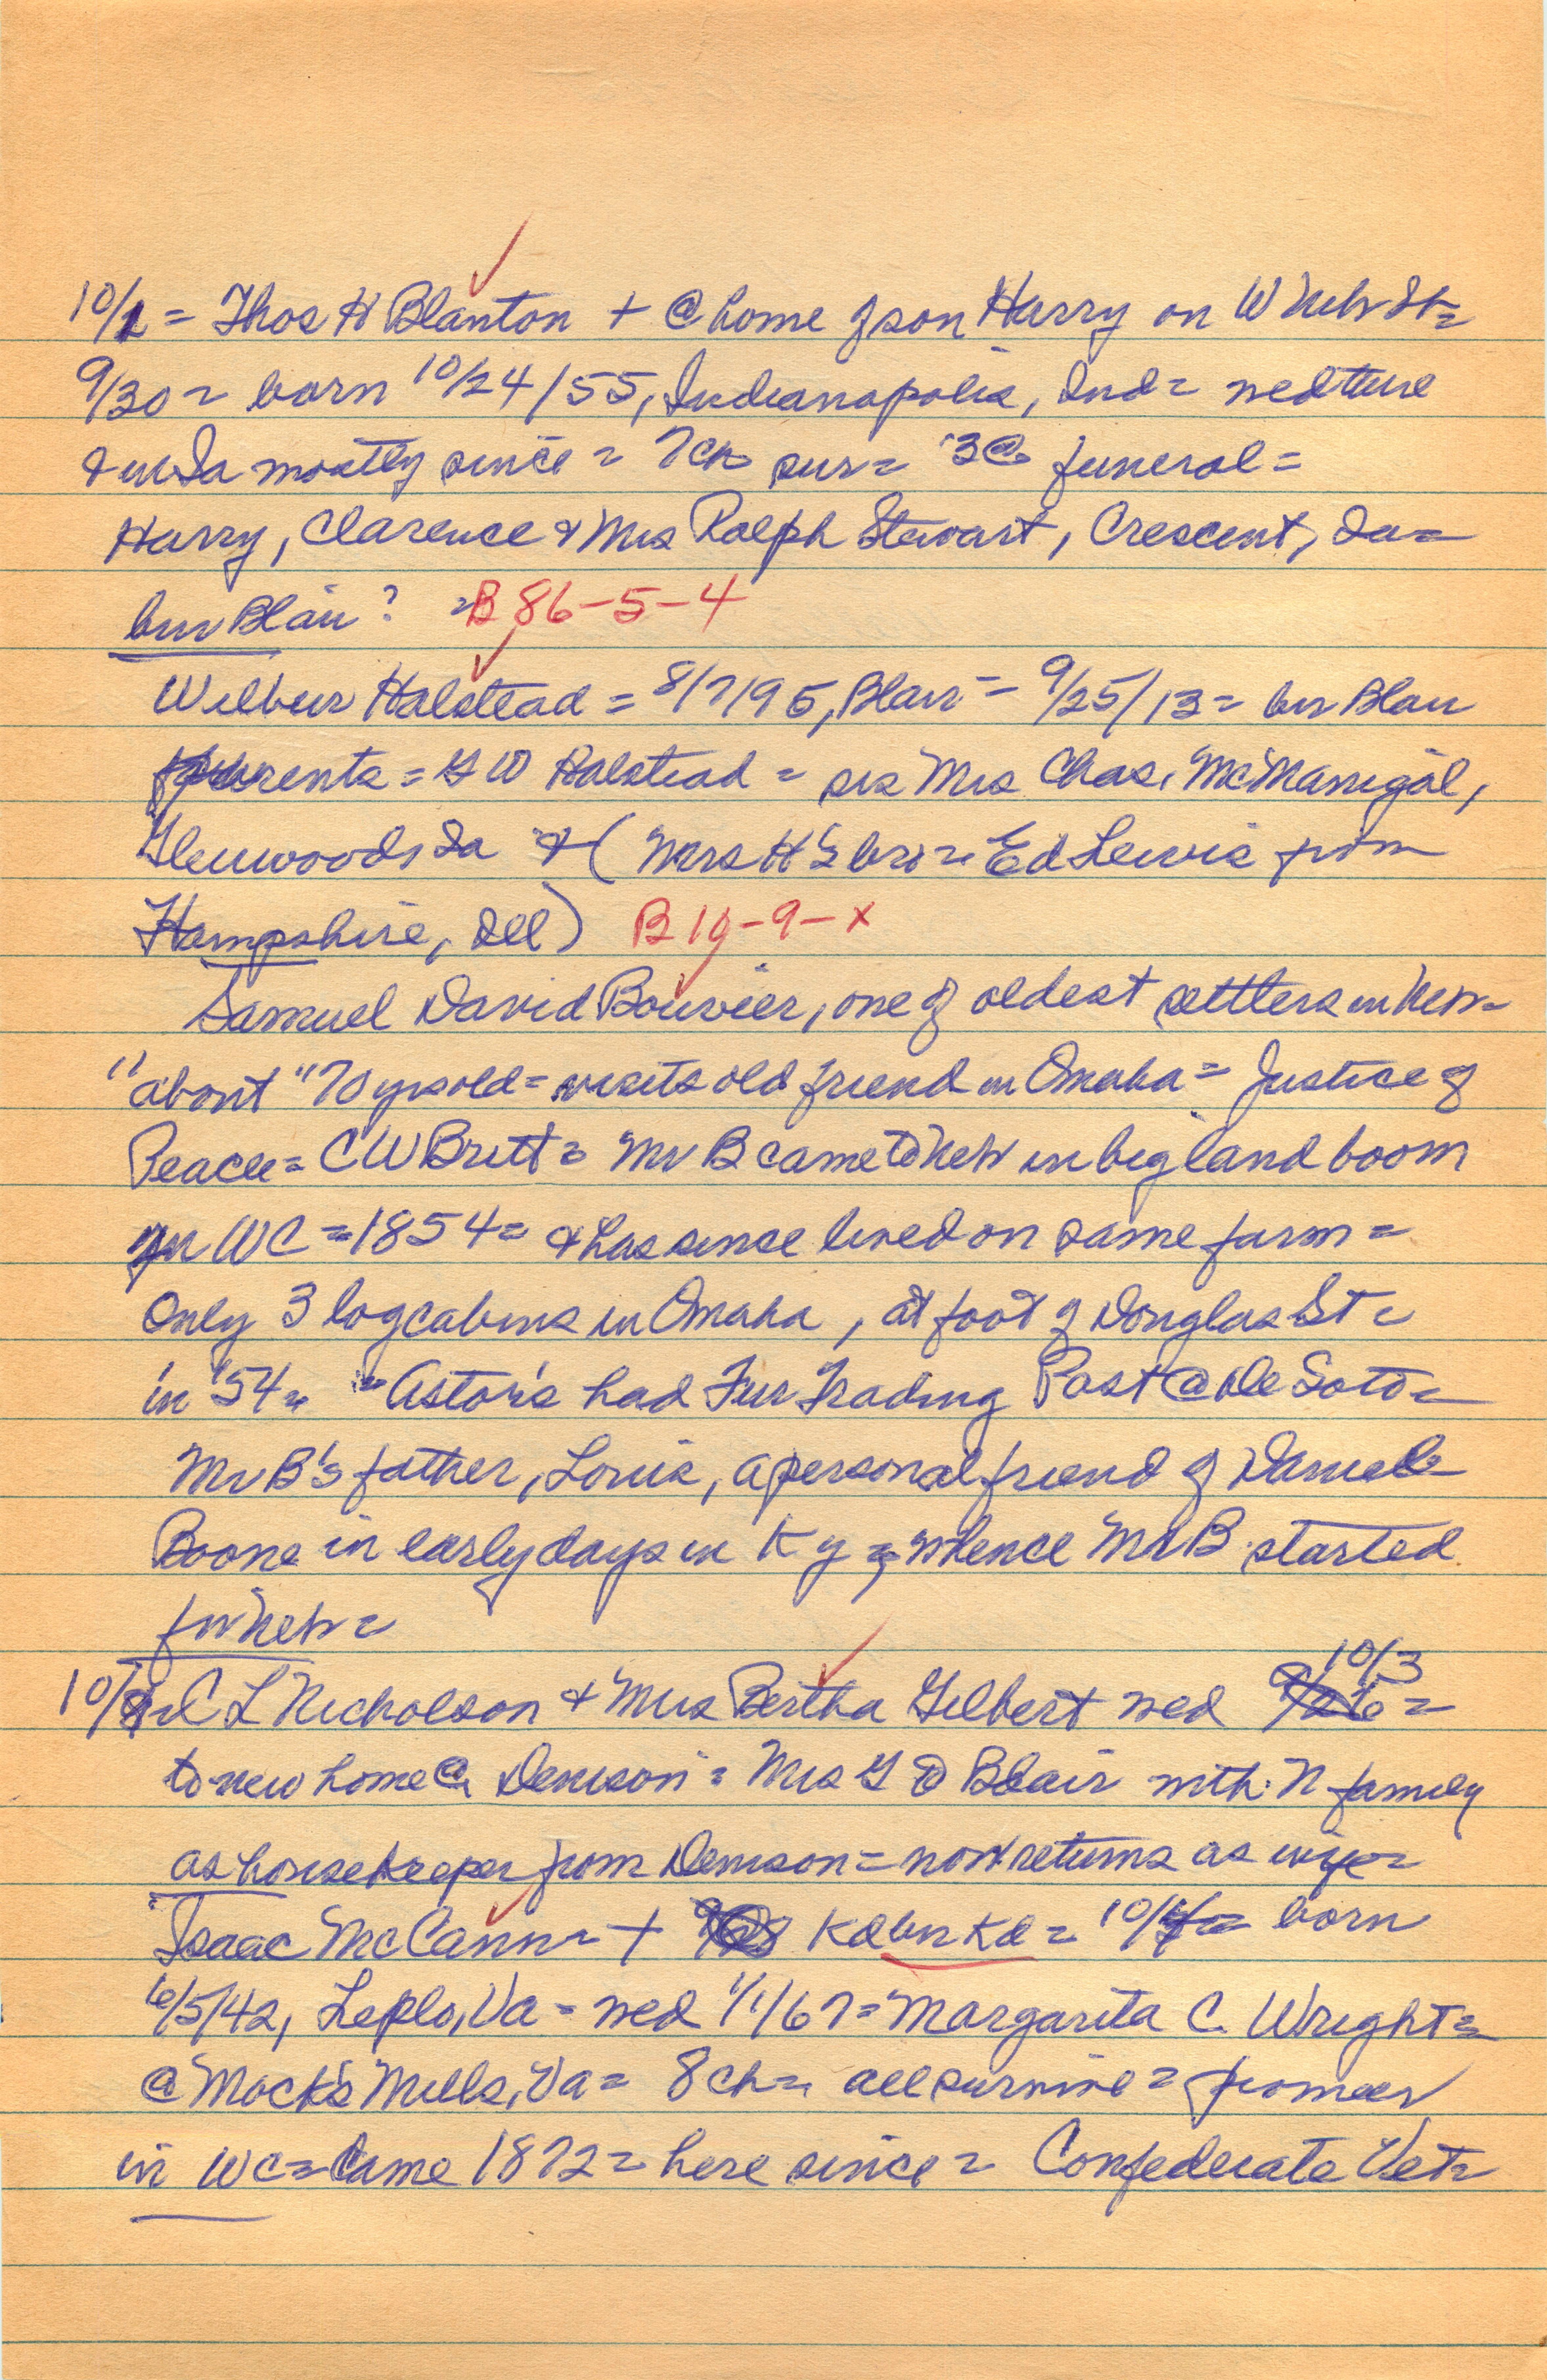 10/1 = Thos H Blanton + @ home of son Harry on W Neb St =
9/30 = born 10/24/55, Indianapolis, Ind = wed there
& in Ia mostly since = 7 ch sur = 3 @ funeral =
Harry, Clarence & Mrs Ralph Stewart, Crescent, Ia =
bur Blair? = B 86-5-4
Wilbur Halstead = 8/7/95, Blair = 9/25/13 = bur Blair
parents = G W Halstead = sis Mrs Chas. McManigal,
Glenwood, Ia & (Mrs H's bro = Ed Lewis from
Hampshire, Ill) B 19-9-X
Samuel David Bouvier, one of oldest settlers in Neb =
"about" 70 yrs old = visits old friend in Omaha = Justice of
Peace = C W Britt = Mr B came to Neb in big land boom
in WC = 1854 = & has since lived on same farm =
Only 3 log cabins in Omaha, at foot of Douglas St =
in '54 = Astor's had Fur Trading Post @ De Soto =
Mr B's father, Louis, a personal friend of Daniel
Boone in early days in Ky =, whence Mr B started
for Neb =
10/ C L Nicholson & Mrs Bertha Gilbert wed 10/3 =
to new home @ Denison = Mrs G @ Blair with N family
as housekeeper from Denison = now returns as wife =
Isaac McCann = + Kd bur Kd = 10/ = born
6/5/42, Leplo, Va = wed 1/1/67 = Margarita C. Wright =
@ Mock's Mills, Va = 8 ch = all survive = pioneer
in WC = Came 1872 = here since = Confederate Vet =